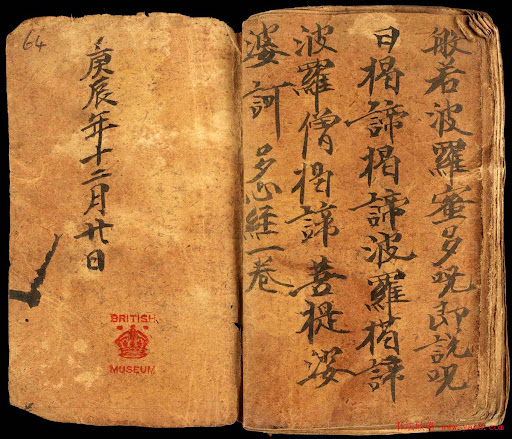 般若波羅蜜多呪即說呪
曰揭諦揭諦波羅揭諦
波羅僧揭諦菩提娑
婆訶多心経一卷
庚辰年十二月廿日
64
BRITISH
MUSEUM